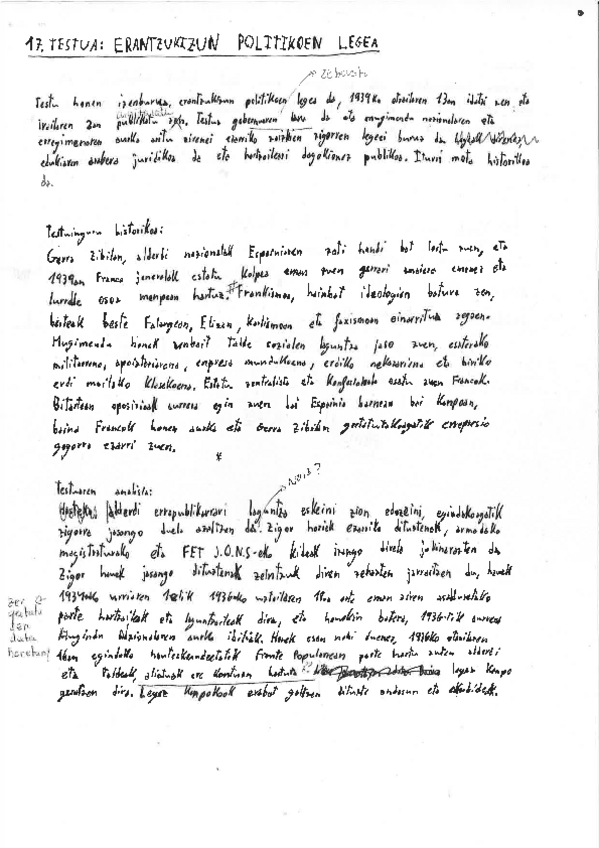 17. TESTUA: ERANTZUKIZUN POLITIKOEN LEGEA
zehaztu
Testu honen izenburua, erantzukizun politikoen legea da, 1939ko otsailaren 13an idatzi zen eta
izailaren 2an publikatu zen. Testua gobernuaren lana da eta mugimendu nazionalaren eta
erregimenaren aurka aritu zirenei ezarriko zaizkien zigorren legeei buruz da
edukiaren arabera juridikoa da eta hartzaileari dagokionez publikoa. Iturri mota historikoa
da.
Testuinguru historikoa:
Gerra Zibilan, alderdi nazionalak Espainiaren zati handi bat lortu zuen, eta
1939an Franco jeneralak estatu kolpea eman zuen gerrari amaiera emanez eta
lurralde osoa menpean hartuz. # Frankismoa, hainbat ideologien batura zen,
besteak beste Falangean, Elizan, Karlismoan eta faxismoan oinarritua zegoen.
Mugimendu honek zenbait talde sozialen laguntza jaso zuen, esaterako
militarrena, apaizteriarena, enpresa mundukoena, erdiko nekazariena eta hiriko
erdi mailako klasekoena. Estatu zentralista eta konfesionala osatu zuen Francok.
Bitartean oposizioak aurrera egin zuen bai Espainia barnean bai kanpoan,
baina Francok honen aurka eta Gerra Zibilan gertatutakoagatik errepresio
gogorra ezarri zuen.
*
Noiz?
Testuaren analisia:
alderdi errepublikarrari laguntza eskeini zion edozeini, egindakoagatik
zigorra jasango duela azaltzen da. Zigor horiek ezarriko dituztenak, armadako
magistraturako eta FET J.O.N.S-eko kideak izango direla jakinarazten da
Zigor hauek jasango dituztenak zeintzuk diren zehazten jarraitzen du, hauek
1934ko urriaren 1etik 1936ko uztailaren 18ra arte eman ziren asalduretako
parte hartzaileak eta laguntzaileak dira, eta hauekin batera, 1936-tik aurrera
Mugindu Nazionalaren aurka ibiliak. Honek esan nahi duenez, 1936ko otsailaren
16an egindako hauteskundeetatik Fronte Popularrean parte hartu zuten alderdi
eta taldeak, aliatuak ere kontuan hartuta legez kanpo
geratzen dira. Legez kanpokoak erabat galtzen dituzte ondasun eta eskubideak.
zer
gertatu
zen
data
horietan?